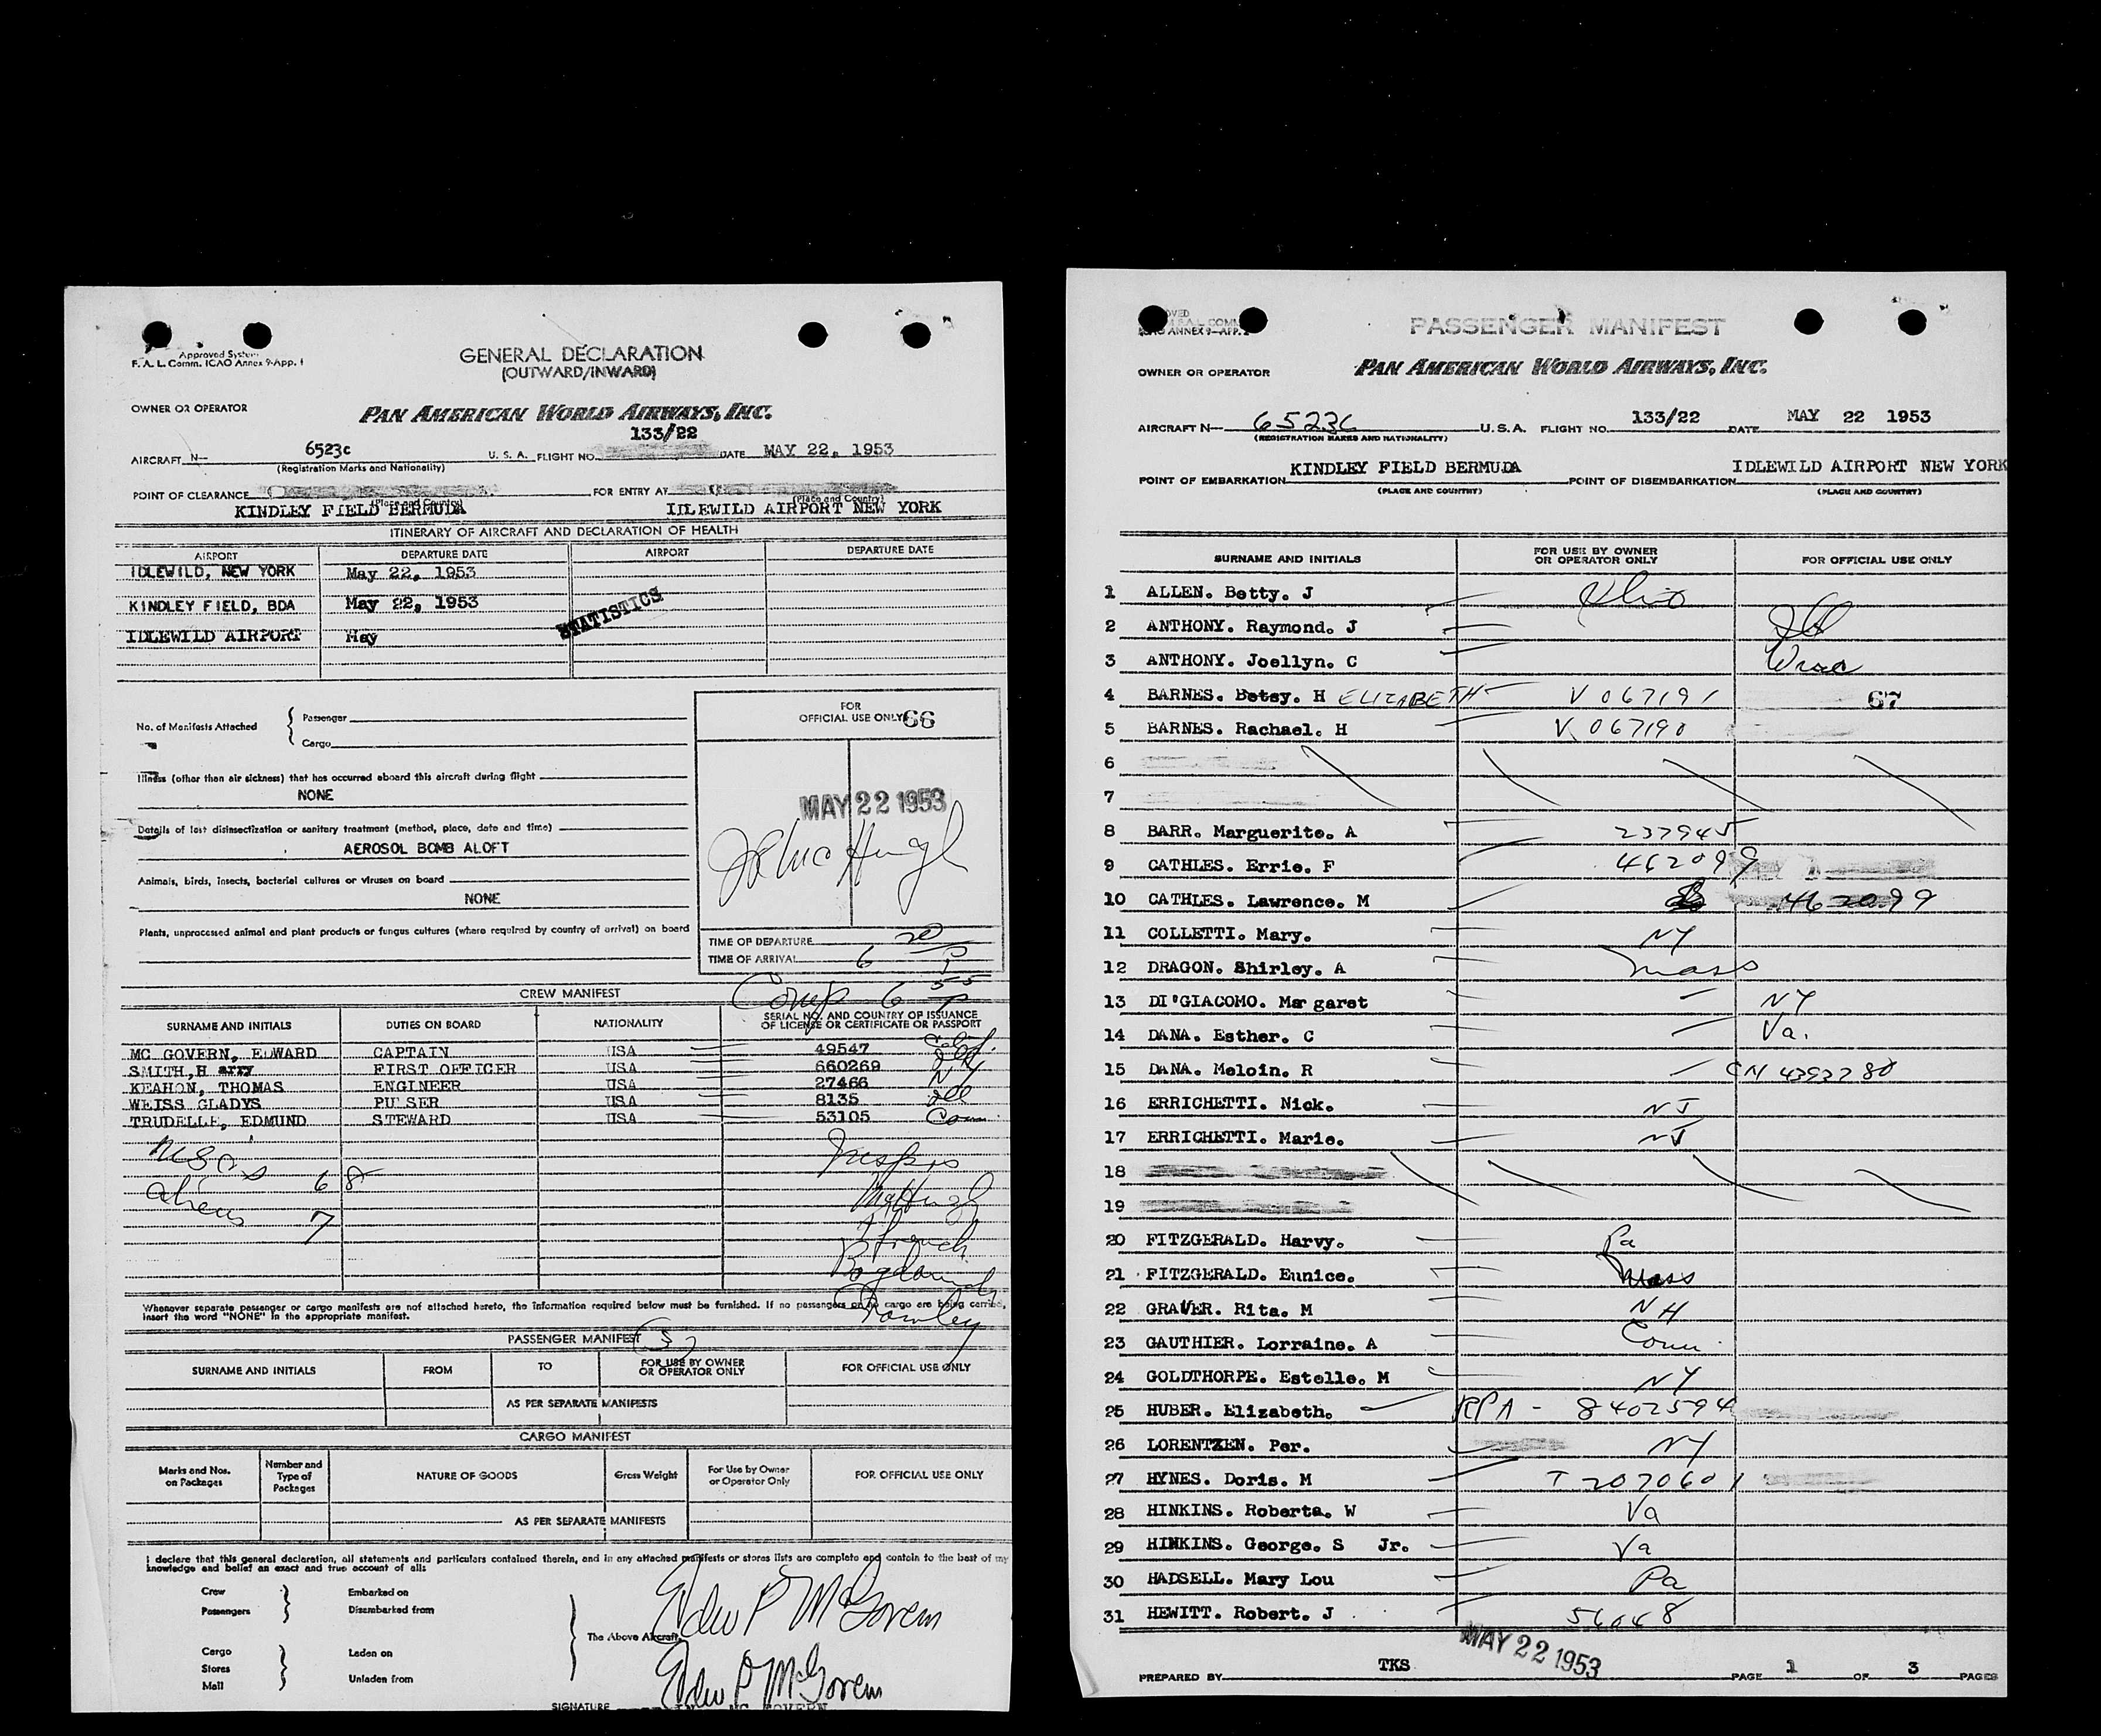 Approved System
F. A. L. Comm. ICAO Annex 9-App. 1
GENERAL DECLARATION
(OUTWARD/INWARD)
OWNER OR OPERATOR
PAN AMERICAN WORLD AIRWAYS, INC.
133/22
AIRCRAFT N— 6523c U. S. A. FLIGHT NO. DATE MAY 22, 1953
(Registration Marks and Nationality)
POINT OF CLEARANCE FOR ENTRY AT
(Place and Country) (Place and Country)
KINDLEY FIELD BERMUDA IDLEWILD AIRPORT NEW YORK
ITINERARY OF AIRCRAFT AND DECLARATION OF HEALTH
AIRPORT DEPARTURE DATE AIRPORT DEPARTURE DATE
IDLEWILD, NEW YORK May 22, 1953
KINDLEY FIELD, BDA May 22, 1953
STATISTICS
IDLEWILD AIRPORT May
FOR
OFFICIAL USE ONLY 66
No. of Manifests Attached Passenger
Cargo
Illness (other than air sickness) that has occurred aboard this aircraft during flight
NONE
MAY 22 1953
Details of last disinsectization or sanitary treatment (method, place, date and time)
AEROSOL BOMB ALOFT
Animals, birds, insects, bacterial cultures or viruses on board
NONE
Plants, unprocessed animal and plant products or fungus cultures (where required by country of arrival) on board
TIME OF DEPARTURE
TIME OF ARRIVAL 6 20 P
Comp 6 55 P
CREW MANIFEST
SURNAME AND INITIALS DUTIES ON BOARD NATIONALITY SERIAL NO. AND COUNTRY OF ISSUANCE
OF LICENSE OR CERTIFICATE OR PASSPORT
MC GOVERN, EDWARD CAPTAIN USA 49547
SMITH, Harry FIRST OFFICER USA 660269
KEAHON, THOMAS ENGINEER USA 27466 NY
WEISS GLADYS PURSER USA 8135 Ill
TRUDELLE, EDMUND STEWARD USA 53105 Conn
USCs 68
Aliens 7
Insprs
McHugh
French
Whenever separate passenger or cargo manifests are not attached hereto, the information required below must be furnished. If no passengers or no cargo are being carried,
insert the word "NONE" in the appropriate manifest.
PASSENGER MANIFEST
SURNAME AND INITIALS FROM TO FOR USE BY OWNER
OR OPERATOR ONLY FOR OFFICIAL USE ONLY
AS PER SEPARATE MANIFESTS
CARGO MANIFEST
Marks and Nos.
on Packages Number and
Type of
Packages NATURE OF GOODS Gross Weight For Use by Owner
or Operator Only FOR OFFICIAL USE ONLY
AS PER SEPARATE MANIFESTS
I declare that this general declaration, all statements and particulars contained therein, and in any attached manifests or stores lists are complete and contain to the best of my
knowledge and belief an exact and true account of all:
Crew Embarked on
Passengers Disembarked from
The Above Aircraft
Cargo Laden on
Stores
Mail Unladen from
Edw P McGovern
Edw P McGovern
SIGNATURE
ICAO ANNEX 9—APP. 2
PASSENGER MANIFEST
OWNER OR OPERATOR PAN AMERICAN WORLD AIRWAYS, INC.
AIRCRAFT N— 6523C U.S.A. FLIGHT NO. 133/22 DATE MAY 22 1953
(REGISTRATION MARKS AND NATIONALITY)
KINDLEY FIELD BERMUDA IDLEWILD AIRPORT NEW YORK
POINT OF EMBARKATION POINT OF DISEMBARKATION
(PLACE AND COUNTRY) (PLACE AND COUNTRY)
SURNAME AND INITIALS FOR USE BY OWNER
OR OPERATOR ONLY FOR OFFICIAL USE ONLY
1 ALLEN. Betty. J Ohio
2 ANTHONY. Raymond. J Ill
3 ANTHONY. Joellyn. C
4 BARNES. Betsy. H ELIZABETH V 067191 67
5 BARNES. Rachael. H V 067190
6
7
8 BARR. Marguerite. A 237945
9 CATHLES. Errie. F 462099
10 CATHLES. Lawrence. M 462099
11 COLLETTI. Mary. NY
12 DRAGON. Shirley. A Mass
13 DI'GIACOMO. Margaret NY
14 DANA. Esther. C Va.
15 DANA. Meloin. R CN 4393280
16 ERRICHETTI. Nick. NJ
17 ERRICHETTI. Marie. NJ
18
19
20 FITZGERALD. Harvy. Pa
21 FITZGERALD. Eunice. Mass
22 GRAVER. Rita. M NH
23 GAUTHIER. Lorraine. A Conn.
24 GOLDTHORPE. Estelle. M NY
25 HUBER. Elizabeth. RPA - 8402594
26 LORENTZEN. Per. NY
27 HYNES. Doris. M T 2070601
28 HINKINS. Roberta. W Va
29 HINKINS. George. S Jr. Va
30 HADSELL. Mary Lou Pa
31 HEWITT. Robert. J 56048
MAY 22 1953
PREPARED BY TKS PAGE 1 OF 3 PAGES